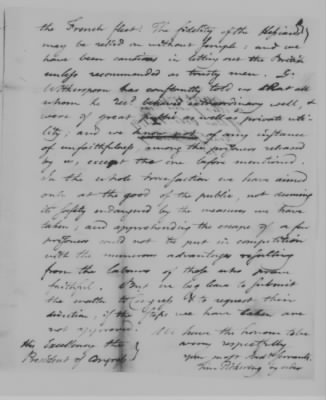 the French fleet. The fidelity of the Hessians
may be relied on without scruple; and we
have been cautious in letting out the British
unless recommended as trusty men. Dr.
Witherspoon has constantly told us that all
whom he rec'd behaved extraordinary well, &
were of great public as well as private uti-
lity; and we know not of any instance
of unfaithfulness among the prisoners released
by us, except the one before mentioned.
In the whole transaction we have aimed
only at the good of the public, not deeming
its safety endangered by the measures we have
taken; and apprehending the escape of a few
prisoners could not be put in competition
with the numerous advantages resulting
from the labours of those who prove
faithful. But we beg leave to submit
the matter to Congress & to request their
direction, if the steps we have taken are
not approved. We have the honour to be
very respectfully
your most obedt servants,
Tim. Pickering by order
His Excellency the
President of Congress